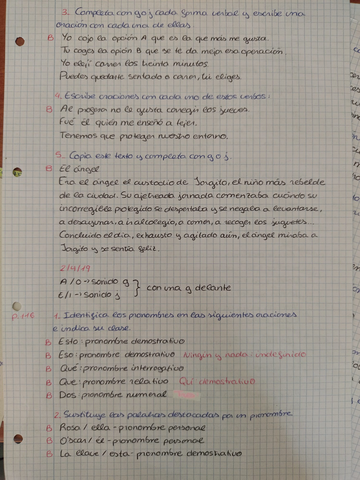 3. Completa con g o j cada forma verbal y escribe una
oración con cada una de ellas.
B Yo cojo la opción A que es la que más me gusta.
Tu coges la opción B que se te da mejor esa operación.
Yo elejí correr los treinta minutos
Puedes quedarte sentado o correr, tú eliges.
4. Escribe oraciones con cada uno de estos verbos:
B Al profesor no le gusta corregir los jueves.
Fué él quién me enseñó a tejer.
Tenemos que proteger nuestro entorno.
5. Copia este texto y completa con g o j
B El ángel
Era el ángel el custodio de Jorgito, el niño más rebelde
de la ciudad. Su ajetreada jornada comenzaba cuando su
incorregible protegido se despertaba y se negaba a levantarse,
a desayunar, a ir al colegio, a comer, a recoger los juguetes...
Concluido el día, exhausto y agitado aún, el ángel miraba a
Jorgito y se sentía feliz.
2/4/19
A/O → sonido g
E/I → sonido j } con una g delante
p. 116 1. Identifica los pronombres en las siguientes oraciones
e indica su clase.
B Esto: pronombre demostrativo
B Eso: pronombre demostrativo Ningún y nada: indefinido
B Qué: pronombre interrogativo
B Que: pronombre relativo Qué demostrativo
B Dos: pronombre numeral
2. Sustituye las palabras destacadas por un pronombre.
B Rosa / ella - pronombre personal
B Óscar / él - pronombre personal
B La llave / esta - pronombre demostrativo